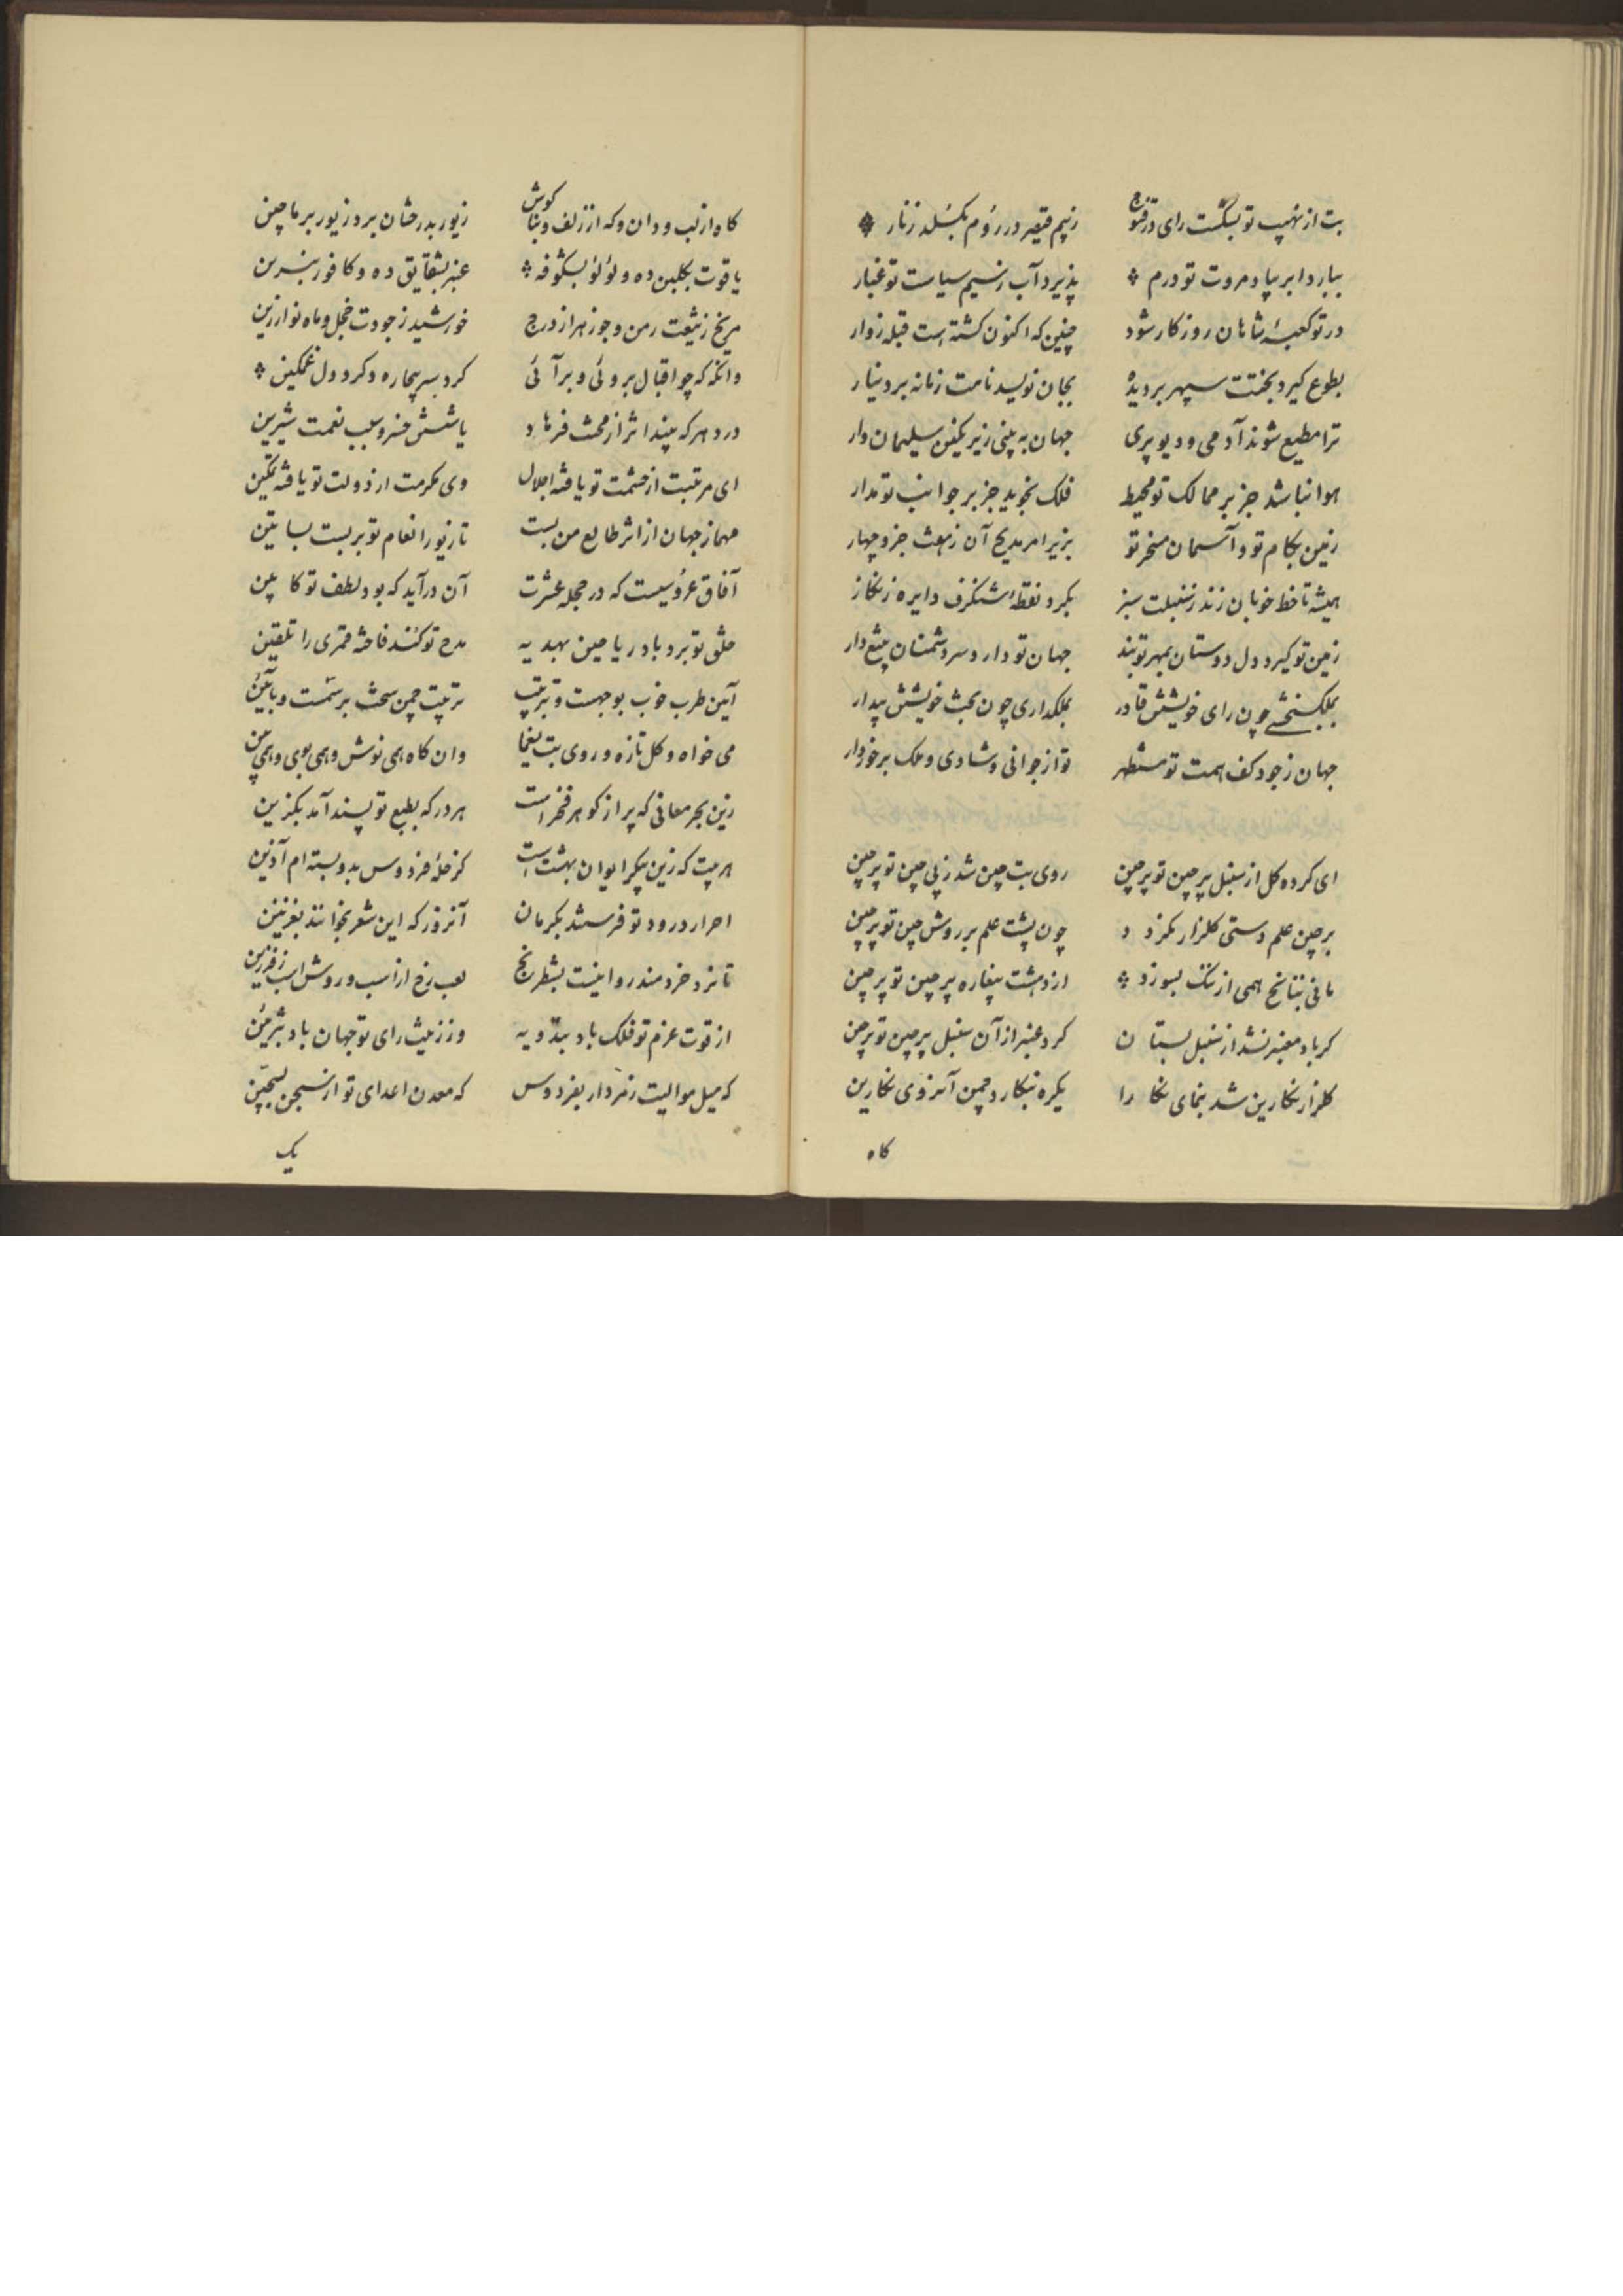 بت از نهیب تو بشکست رای در قنوج زبیم قیصر در روم بگسلد زنار
ببارد ابر بیاد مروت تو درم پذیرد آب ز نسیم سیاست تو غبار
در تو کعبهٔ شاهان روزکار شود چنین که اکنون کشته است قبله زوار
بطوع کیرد بختت سپهر بر دیدهٔ بجان نویسد نامت زمانه بر دینار
ترا مطیع شوند آدمی و دیو و پری جهان به بینی زیر نکین سلیمان وار
هوا نباشد جز بر ممالک تو محیط فلک نجوید جز بر جوانب تو مدار
زمین بکام تو و آسمان مسخر تو بزیر امر
همیشه تا خط خوبان زند ز سنبلت سبز بکرد نقطه شنکرف دایره زنکار
زمین تو کیر و دل دوستان بمهر تو بند جهان تو دار و سر دشمنان بتیغ دار
چون رای خویشتن قادر بملکداری چون بخت خویشتن بیدار
جهان ز جود کف همت تو مستظهر تو از جوانی و شادی و ملک برخوردار
ای کرده کل از سنبل پرچین تو پرچین روی بت چین شد ز پی چین تو پرچین
برچین علم دستی کلزار نکرد چون پشت علم بر روش چین تو پرچین
مانی بتناسخ همی از ننک بسوزد از دهشت پیغاره پرچین تو پرچین
کر باد معنبر نشد از سنبل بستان کرد عنبر از آن سنبل پرچین تو پرچین
کلزار نکارین شد بنمای نکارا یکره بنکار و چمن آنروی نکارین
کاه
کاه از لب و دندان و که از زلف و بناکوش زیور ببدخشان برد زیور بر ماچین
یاقوت بکلبن ده و لؤلؤ بشکوفه عنبر بشقایق ده و کافور بنسرین
مریخ ز تیغت رمن و جوزهر از درج خورشید ز جودت خجل و ماه نو از زین
وانکه که چو اقبال بروئی و برآئی کرد سر بیچاره و کرد دل غمکین
درد هر که بیند اثر از محنت فرهاد یا شش خسرو سبب نعمت شیرین
ای مرتبت از حشمت تو یافته اجلال وی مکرمت از دولت تو یافته تمکین
جهان از اثر طایع من بست تا زیور انعام تو بر بست بساتین
آفاق عروسیست که در حجله عشرت آن درآید که بود لطف تو کابین
خلق تو برد باد ریاحین بهدیه مدح تو کند فاخته قمری را تلقین
آیین طرب خوب بو جهست و ترتیب ترتیب چمن سخت برسمت و بآیین
می خواه و کل تازه و روی بت یغما وان کاه همی نوش و همی بوی و همی بین
زین بحر معانی که پر از کوهر فخر است هر در که بطبع تو پسند آمد بکزین
هر بیت که زین پیکر ایوان بهشت است کز حلهٔ فردوس بدو بسته ام آذین
احرار درود تو فرستند بکرمان آنروز که این شعر بخوانند بغزنین
تا نزد خردمند روا نیست بشطرنج لعب رخ از اسب و روش اسب ز فرزین
از قوت عزم تو فلک باد بتدویه وز زینت رای تو جهان باد بتزیین
که میل موالیت ز مردار بفردوس که معدن اعدای تو از سجن بسجین
یک